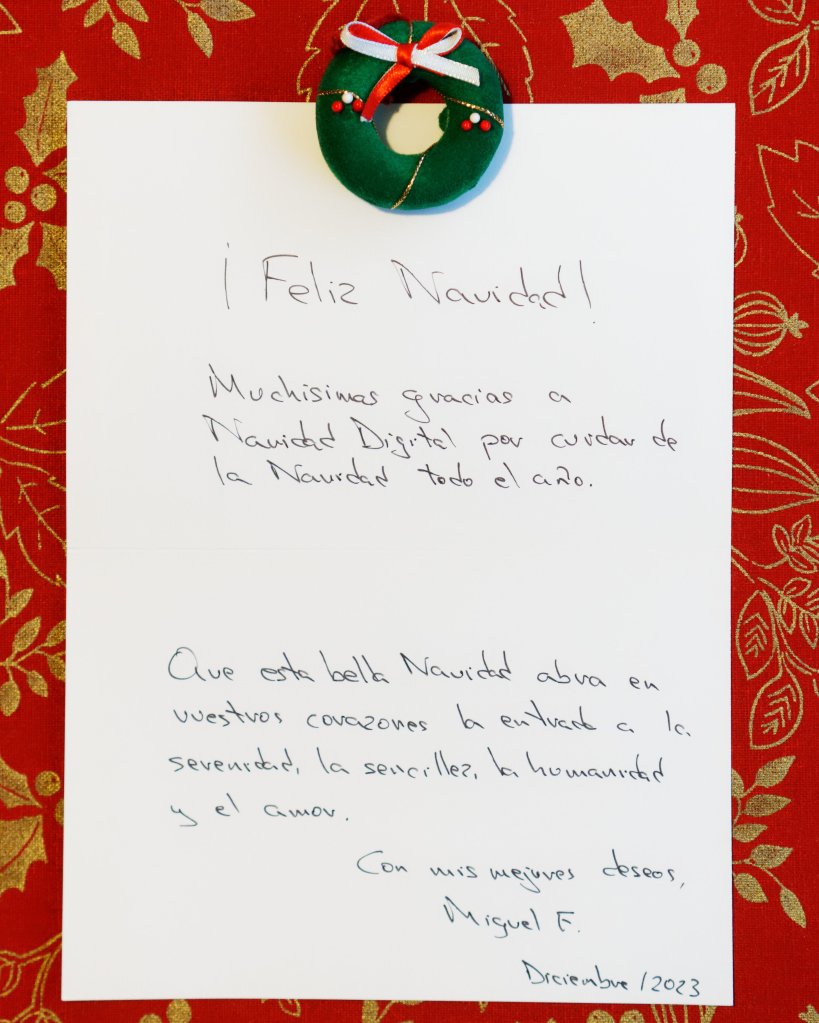 ¡Feliz Navidad!
Muchisimas gracias a
Navidad Digital por cuidar de
la Navidad todo el año.
Que esta bella Navidad abra en
vuestros corazones la entrada a la
serenidad, la sencillez, la humanidad
y el amor.
Con mis mejores deseos,
Miguel F.
Diciembre/2023